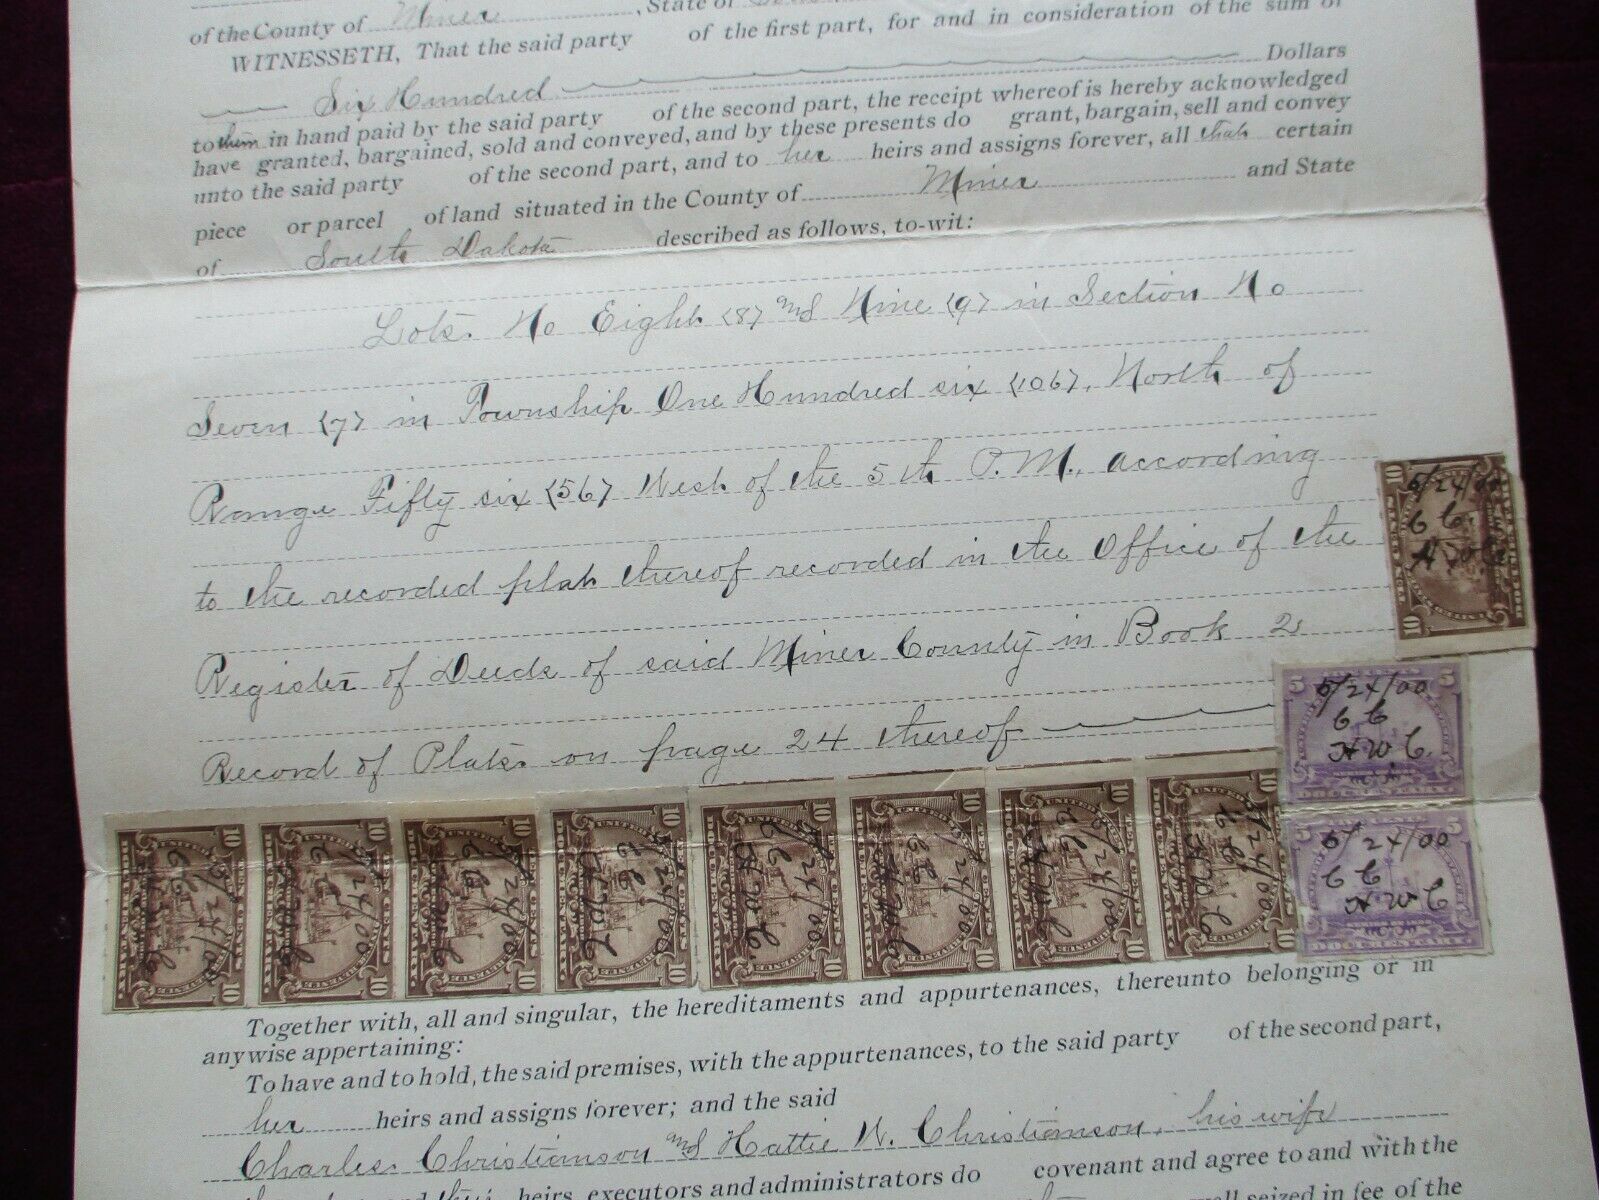 of the County of Miner, State of
WITNESSETH, That the said party of the first part, for and in consideration of the sum of
Six Hundred Dollars
to them in hand paid by the said party of the second part, the receipt whereof is hereby acknowledged
have granted, bargained, sold and conveyed, and by these presents do grant, bargain, sell and convey
unto the said party of the second part, and to her heirs and assigns forever, all that certain
piece or parcel of land situated in the County of Miner and State
of South Dakota described as follows, to-wit:
Lots No Eight <8> and Nine <9> in Section No
Seven <7> in Township One Hundred six <106>, North of
Range Fifty six <56> West of the 5th P.M., according
to the recorded plat thereof recorded in the Office of the
Register of Deeds of said Miner County in Book 2
Record of Plats on page 24 thereof
10
5/24/00
C C
H W C
10
5 5
5/24/00
C C
H W C.
DOCUMENTARY
5
5/24/00
C C
H W C
DOCUMENTARY
10 5/24/00 C C H W C 10
10 5/24/00 C C H W C 10
10 5/24/00 C C H W C 10
10 5/24/00 C C H W C 10
10 5/24/00 C C H W C 10
10 5/24/00 C C H W C 10
10 5/24/00 C C H W C 10
10 5/24/00 C C H W C
Together with, all and singular, the hereditaments and appurtenances, thereunto belonging or in
anywise appertaining:
To have and to hold, the said premises, with the appurtenances, to the said party of the second part,
her heirs and assigns forever; and the said
Charles Christianson and Hattie W. Christianson, his wife
their heirs, executors and administrators do covenant and agree to and with the
well seized in fee of the